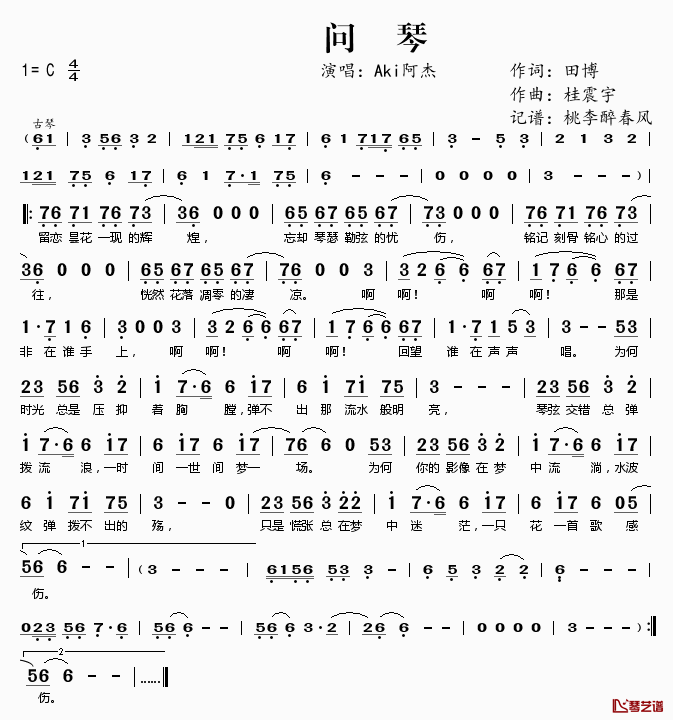 问 琴
1= C 4/4 演唱：Aki阿杰 作词：田博
作曲：桂震宇
记谱：桃李醉春风
古琴
( 61 | 3 56 3 2 | 121 75 6 17 | 6 1 717 65 | 3 - 5 3 | 2 - - - |
121 75 6 17 | 6 1 7·1 75 | 6 - - - | 0 0 0 0 | 3 - - - ) |
‖: 76 71 76 73 | 36 0 0 0 | 65 65 67 67 | 73 0 0 0 | 76 71 76 73 |
留恋 昙花 一现 的辉 煌， 忘却 琴瑟 勒弦 的忧 伤， 铭记 刻骨 铭心 的过
36 0 0 0 | 65 65 67 67 | 76 0 0 3 | 3 26 6 67 | 1 76 6 67 |
往， 恍然 花落 凋零 的凄 凉。 啊 啊！ 啊 啊！ 那是
1·7 1 6 | 3 0 0 3 | 3 26 6 67 | 1 76 6 67 | 1·7 1 53 | 3 - - 53 |
非 在 谁 手 上， 啊 啊！ 啊 啊！ 回望 谁 在 声 声 唱。 为何
23 56 3 2 | 1 7·6 6 17 | 6 1 71 75 | 3 - - - | 23 56 3 2 |
时光 总是 压 抑 着 胸 膛，弹不 出 那 流水 般明 亮， 琴弦 交错 总 弹
1 7·6 6 17 | 6 17 6 17 | 76 6 0 53 | 23 56 3 2 | 1 7·6 6 17 |
拨 流 浪，一时 间 一世 间 梦一 场。 为何 你的 影像 在 梦 中 流 淌，水波
6 1 71 75 | 3 - - 0 | 23 56 3 22 | 1 7·6 6 17 | 6 17 6 05 |
纹 弹 拨不 出的 殇， 只是 慌张 总 在梦 中 迷 茫，一只 花 一首 歌 感
1
56 6 - - | ( 3 - - - | 6156 53 5 3 | 6 5 3 2 | 6 - - - |
伤。
023 56 7·6 | 56 6 - - | 56 56 3·2 | 26 6 - - | 0 0 0 0 | 3 - - - ) :‖
2
56 6 - - | …… ‖
伤。
琴艺谱